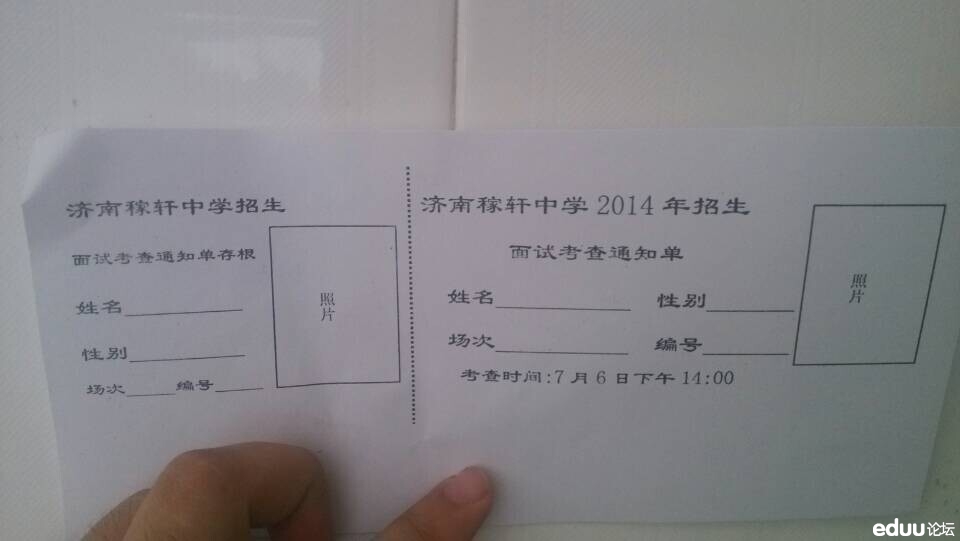 济南稼轩中学招生
面试考查通知单存根
姓名
性别
场次 编号
照片
济南稼轩中学 2014 年招生
面试考查通知单
姓名 性别
场次 编号
考查时间:7 月 6 日下午 14:00
照片
eduu论坛